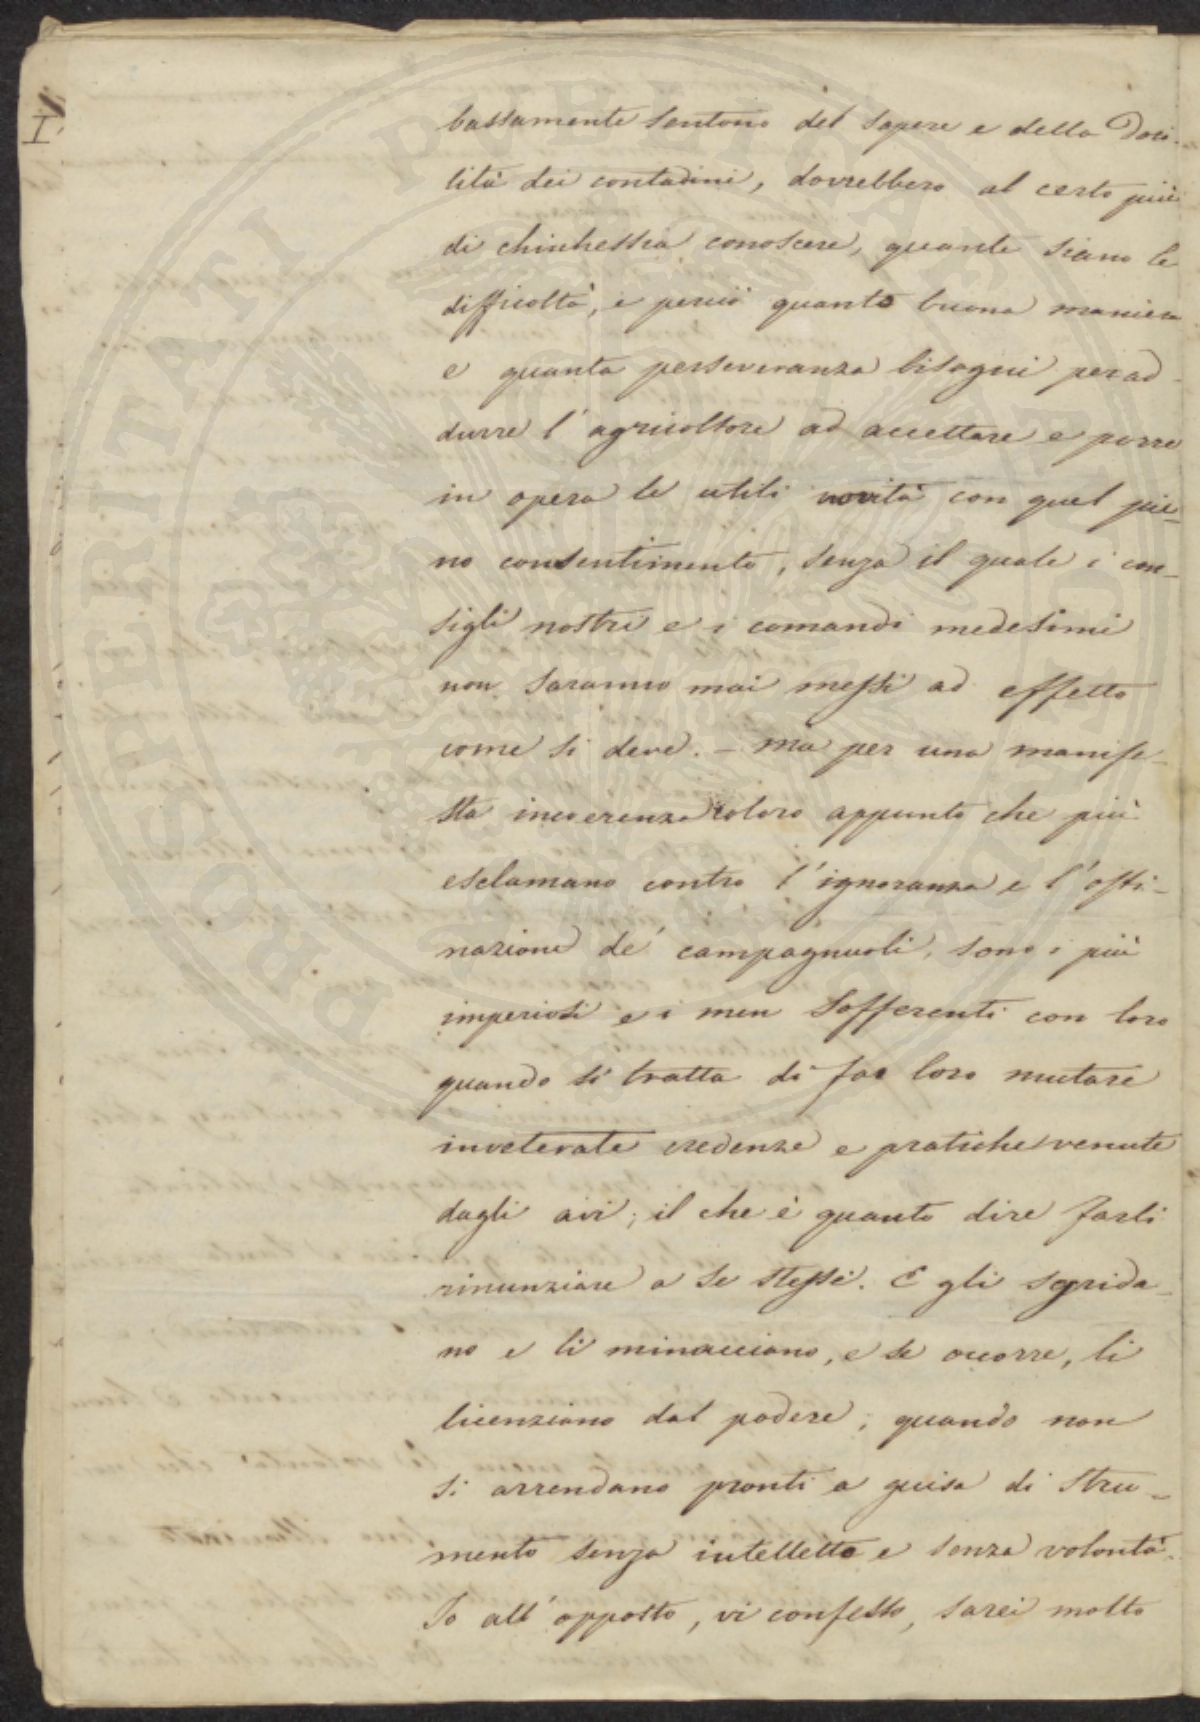 I.
bassamente sentono del sapere e della doci-
lità dei contadini, dovrebbero al certo più
di chichessia conoscere, quante siano le
difficoltà, e perciò quanta buona maniera
e quanta perseveranza bisogni per ad-
durre l'agricoltore ad accettare e porre
in opera le utili novità con quel pie-
no consentimento, senza il quale i con-
sigli nostri e i comandi medesimi
non saranno mai messi ad effetto
come si deve. - Ma per una manife-
sta incoerenza coloro appunto che più
esclamano contro l'ignoranza e l'osti-
nazione de' campagnuoli, sono i più
imperiosi e i men sofferenti con loro
quando si tratta di far loro mutare
inveterate credenze e pratiche venute
dagli avi; il che è quanto dire farli
rinunziare a se stessi. E gli sgrida-
no e li minacciano, e se occorre, li
licenziano dal podere; quando non
si arrendano pronti a guisa di stru-
mento senza intelletto e senza volontà.
Io all'opposto, vi confesso, sarei molto
PROSPERITATI PUBLICAE AUGENDAE